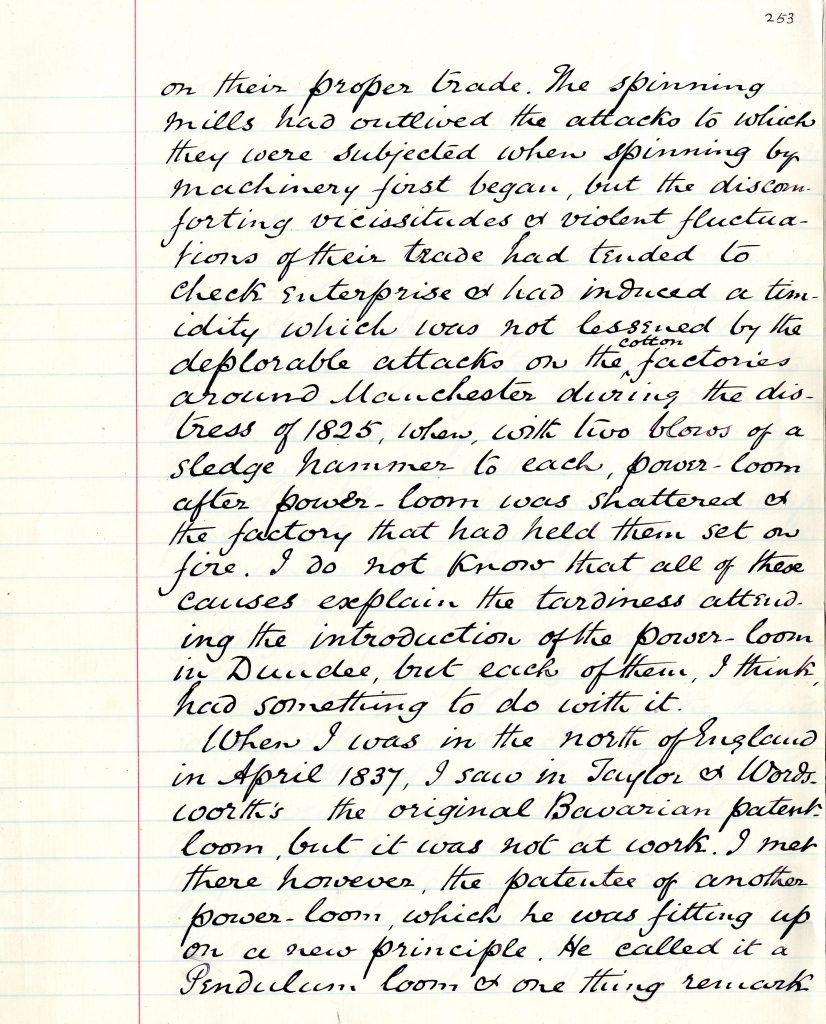 253
on their proper trade. The spinning
mills had outlived the attacks to which
they were subjected when spinning by
machinery first began, but the discom-
forting vicissitudes & violent fluctua-
tions of their trade had tended to
check enterprise & had induced a tim-
idity which was not lessened by the
cotton
deplorable attacks on the factories
around Manchester during the dis-
tress of 1825, when, with two blows of a
sledge hammer to each, power-loom
after power-loom was shattered &
the factory that had held them set on
fire. I do not know that all of these
causes explain the tardiness attend-
ing the introduction of the power-loom
in Dundee, but each of them, I think,
had something to do with it.
When I was in the north of England
in April 1837, I saw in Taylor & Words-
worth's the original Bavarian patent-
loom, but it was not at work. I met
there however, the patentee of another
power-loom, which he was fitting up
on a new principle. He called it a
Pendulum loom & one thing remark-